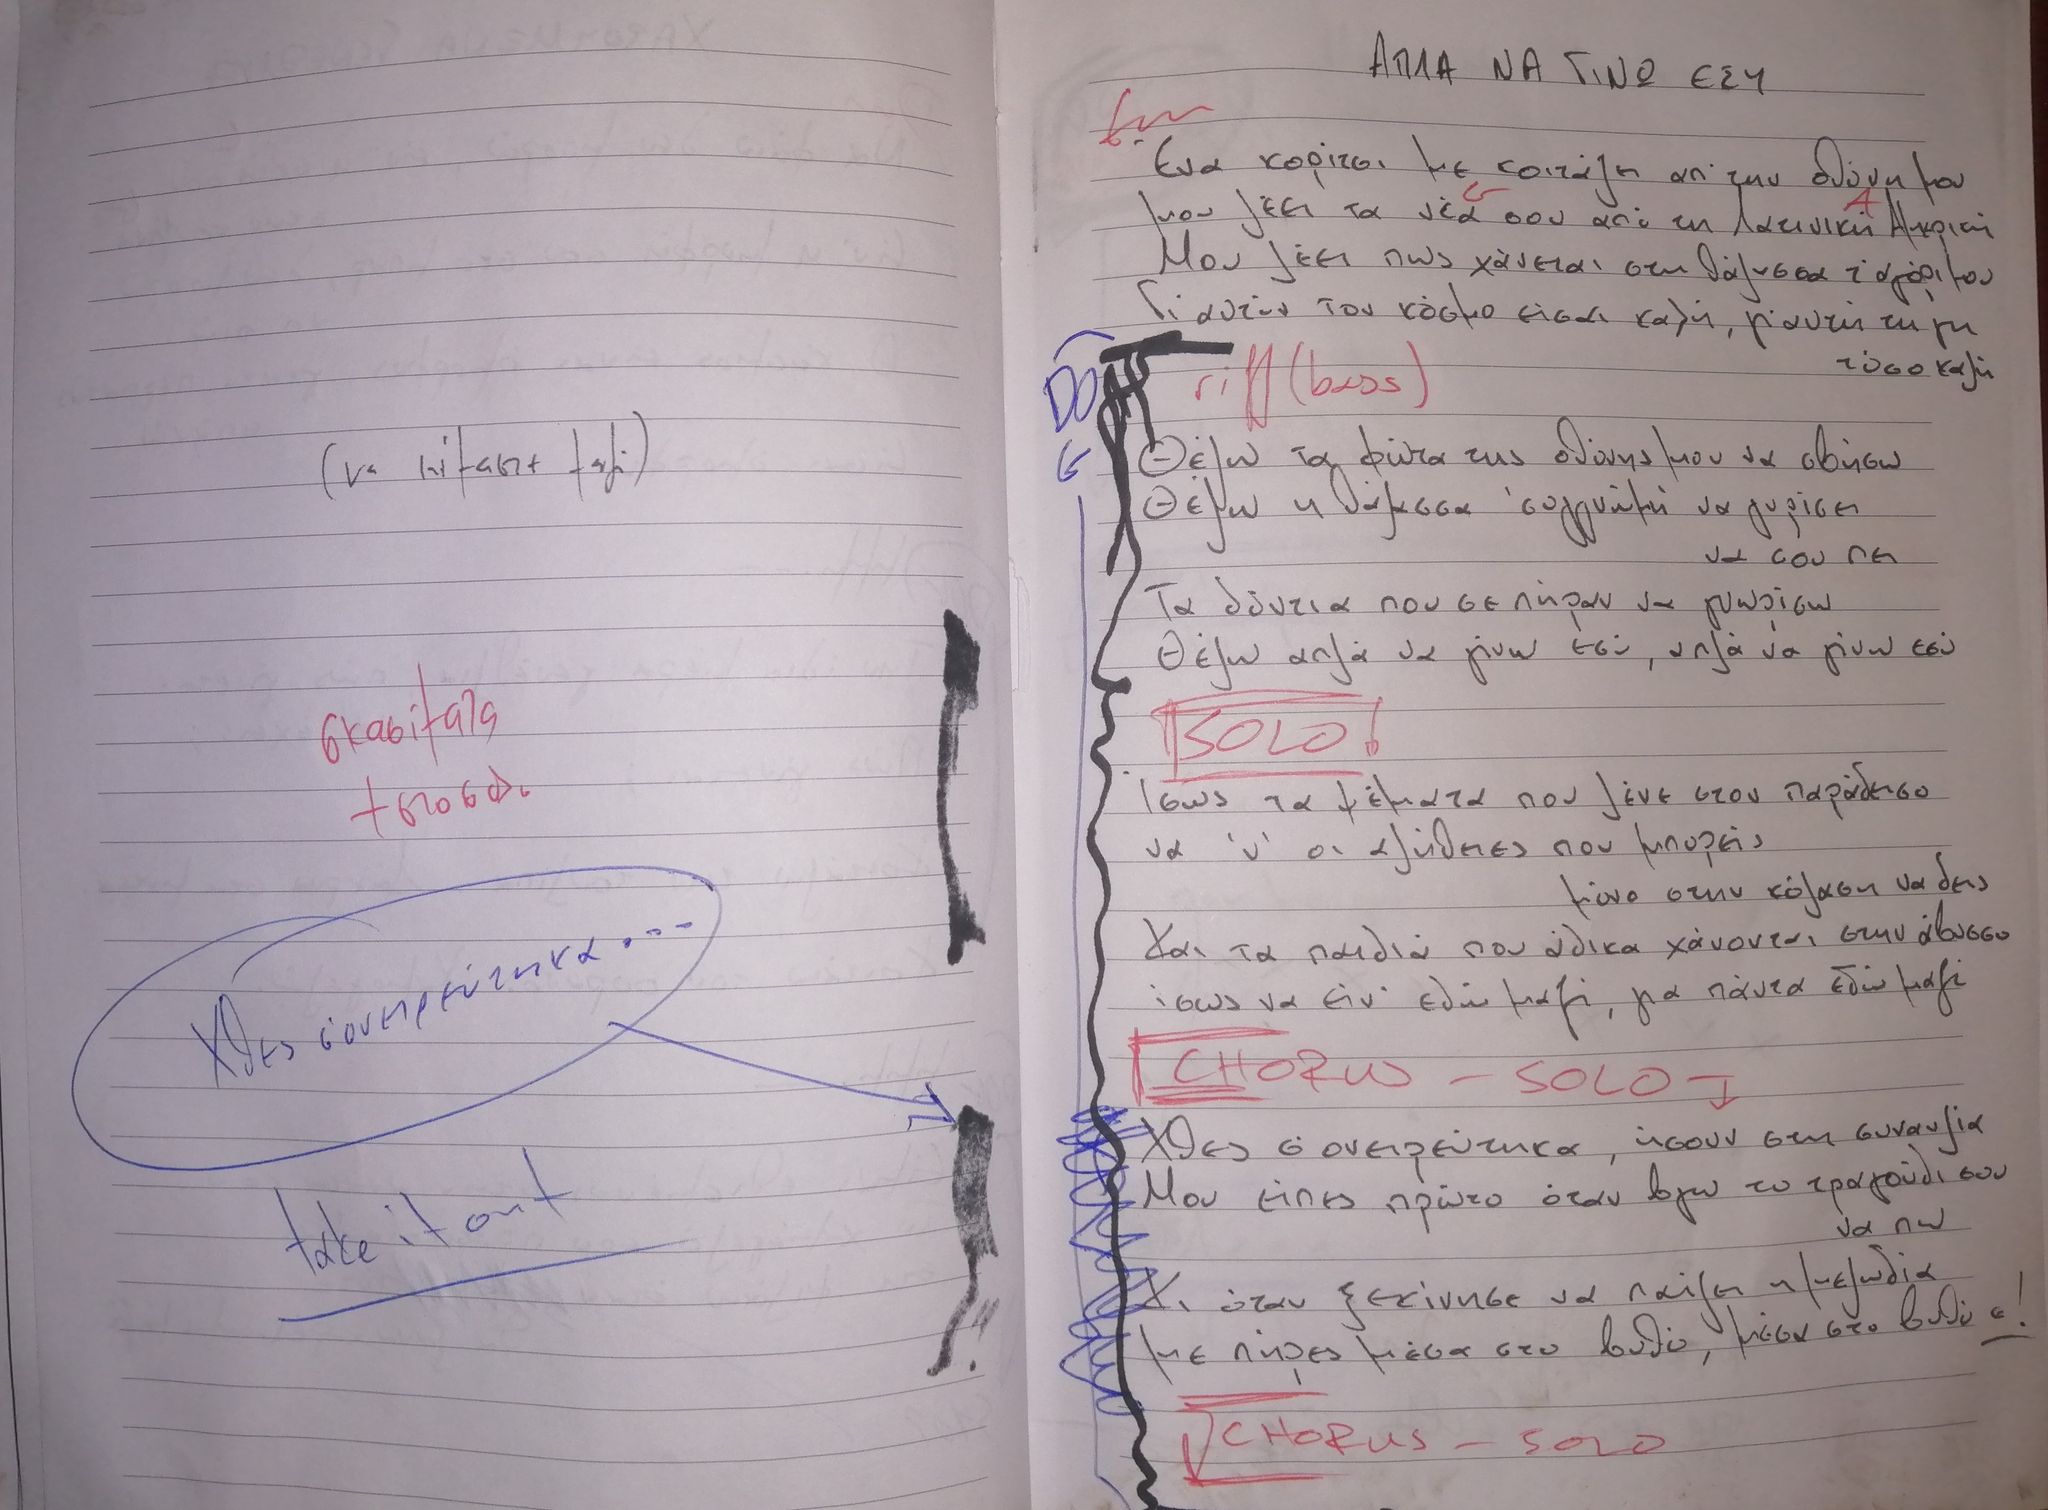 Χθες σ'ονειρεύτηκα...
take it out
ΑΠΛΑ ΝΑ ΓΙΝΩ ΕΣΥ
Em
Ένα κορίτσι με κοιτάζει απ'την οθόνη μου
G A
μου λέει τα νέα σου από τη Λατινική Αμερική
Μου λέει πως χάνεται στη θάλασσα τ'αγόρι μου
Γι αυτόν τον κόσμο είσαι καλή, γι'αυτή τη γη
τόσο καλή
riff (bass)
G
Θέλω τα φώτα της οθόνης μου να σβήσω
Θέλω η θάλασσα 'συγγνώμη να γυρίσει
να σου πει
Τα δόντια που σε πήραν να γνωρίσω
Θέλω απλά να γίνω εσύ, απλά να γίνω εσύ
SOLO
Ίσως τα ψέματα που λένε στον παράδεισο
να 'ν' οι αλήθειες που μπορείς
μόνο στην κόλαση να δεις
Και τα παιδιά που άδικα χάνονται στην άβυσσο
ίσως να είν' εδώ μαζί, για πάντα εδώ μαζί
CHORUS - SOLO
Χθες σ'ονειρεύτηκα, ήσουν στη συναυλία
Μου είπες πρώτο όταν βγω το τραγούδι σου
να πω
Κι όταν ξεκίνησε να παίζει η μελωδία
με πήρες μέσα στο βυθό, μέσα στο βυθό ε!
CHORUS - SOLO